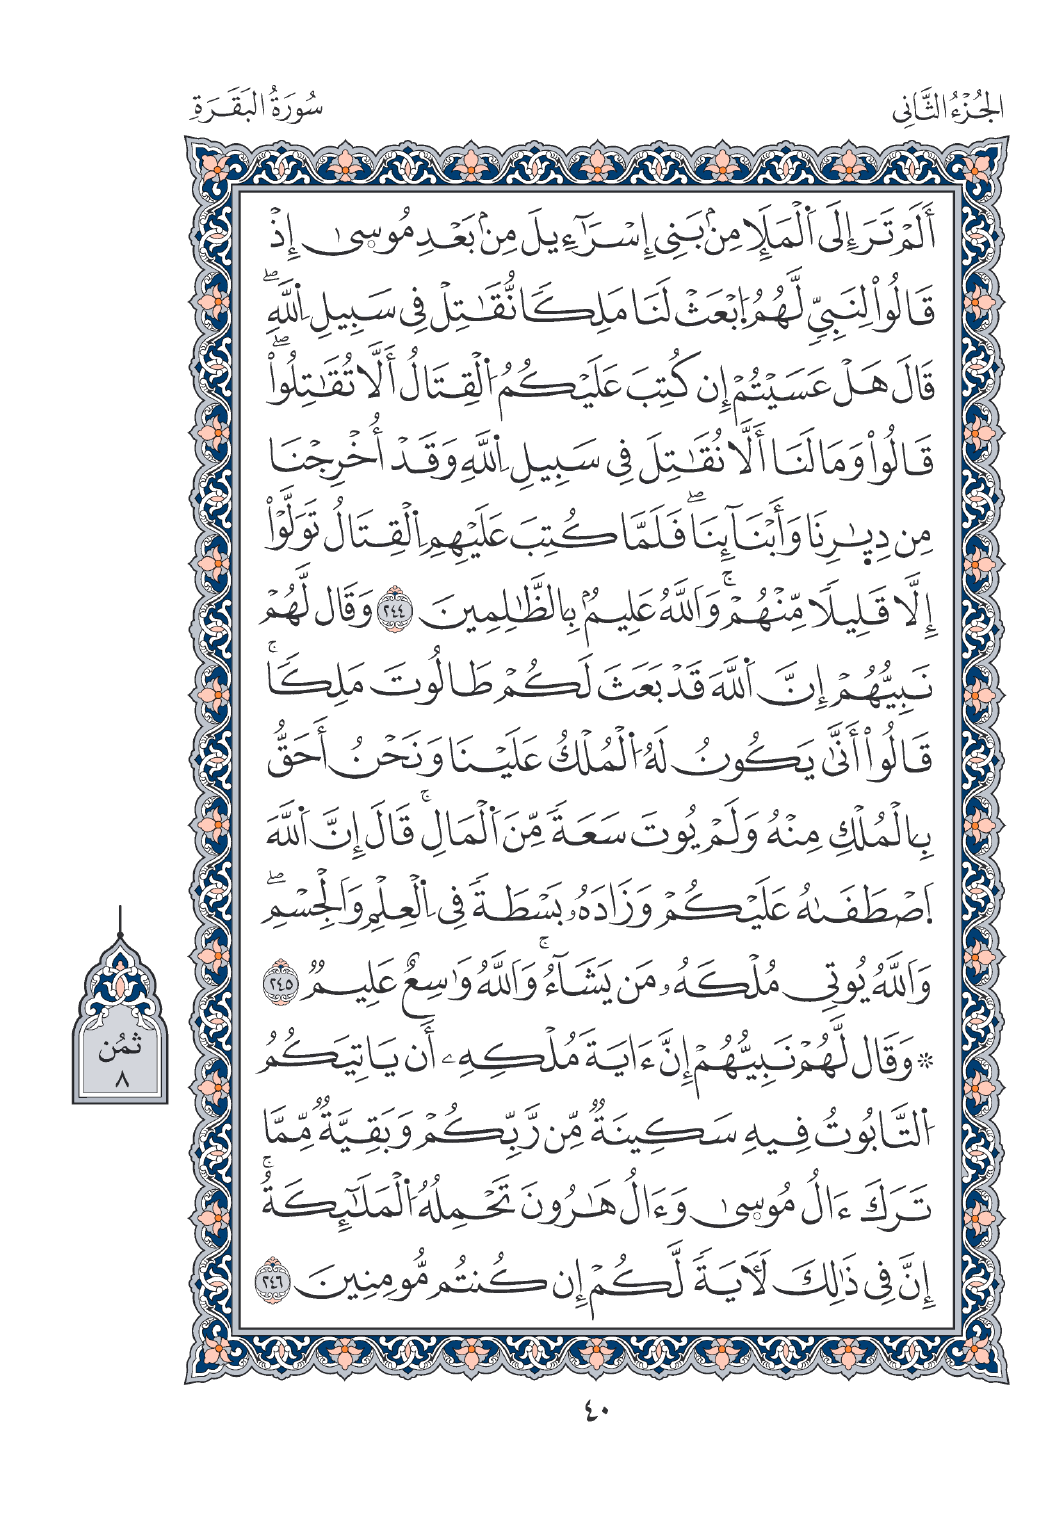 الجُزْءُ الثَّانِي
سُورَةُ البَقَرَةِ
أَلَمْ تَرَ إِلَى اَ۬لْمَلَإِ مِنۢ بَنِي إِسْرَآءِيلَ مِنۢ بَعْدِ مُوسِىٰ إِذْ
قَالُواْ لِنَبِيٍّ لَّهُمُ اُ۪بْعَثْ لَنَا مَلِكاً نُّقَٰتِلْ فِي سَبِيلِ اِ۬للَّهِۖ
قَالَ هَلْ عَسَيْتُمْ إِن كُتِبَ عَلَيْكُمُ اُ۬لْقِتَالُ أَلَّا تُقَٰتِلُواْۖ
قَالُواْ وَمَا لَنَا أَلَّا نُقَٰتِلَ فِي سَبِيلِ اِ۬للَّهِ وَقَدْ أُخْرِجْنَا
مِن دِيٰ۪رِنَا وَأَبْنَآئِنَاۖ فَلَمَّا كُتِبَ عَلَيْهِمِ اِ۬لْقِتَالُ تَوَلَّوْاْ
إِلَّا قَلِيلاً مِّنْهُمْۚ وَاَللَّهُ عَلِيمُۢ بِالظَّٰلِمِينَ ٢٤٤ وَقَال لَّهُمْ
نَبِيُّهُمْ إِنَّ اَ۬للَّهَ قَدْ بَعَثَ لَكُمْ طَالُوتَ مَلِكاًۚ
قَالُواْ أَنّٰى يَكُونُ لَهُ اُ۬لْمُلْكُ عَلَيْنَا وَنَحْنُ أَحَقُّ
بِالْمُلْكِ مِنْهُ وَلَمْ يُوتَ سَعَةً مِّنَ اَ۬لْمَالِۚ قَالَ إِنَّ اَ۬للَّهَ
اَ۪صْطَفَىٰهُ عَلَيْكُمْ وَزَادَهُۥ بَسْطَةً فِي اِ۬لْعِلْمِ وَاَلْجِسْمِۖ
وَاَللَّهُ يُوتِي مُلْكَهُۥ مَن يَشَآءُۚ وَاَللَّهُ وَٰسِعٌ عَلِيمٌ ٢٤٥
۞ وَقَال لَّهُمْ نَبِيُّهُمْ إِنَّ ءَايَةَ مُلْكِهِۦ أَن يَاتِيَكُمُ
اُ۬لتَّابُوتُ فِيهِ سَكِينَةٌ مِّن رَّبِّكُمْ وَبَقِيَّةٌ مِّمَّا
تَرَكَ ءَالُ مُوسِىٰ وَءَالُ هَٰرُونَ تَحْمِلُهُ اُ۬لْمَلَٰٓئِكَةُۚ
إِنَّ فِي ذَٰلِكَ لَأٓيَةً لَّكُمْ إِن كُنتُم مُّومِنِينَ ٢٤٦
ثُمُن
٨
٤٠